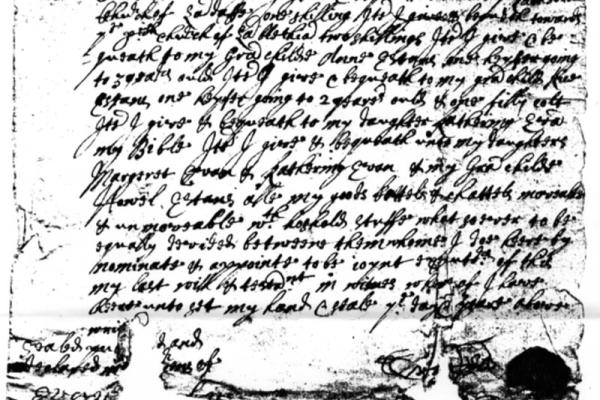 Church of Landaffe one shilling Itd I give & bequeath towards
ye pish Church of two shillings Itd I give & be
queath to my Grandchilde Anne Evans one heyfer going
to 3 years ould Itd I give & bequeath to my grandchilde
Evans one heyfer going to 2 yeares ould & one filly colt
Itd I give & bequeath to my daughter Kathering Evan
my Bible Itd I give & bequeath unto my daughters
Margeret Evan & Kathering Evan & my Grandchilde
Howel Evans alle my goods Cattels & chattels moveable
& unmoveable wth houshold stuffe what soever to be
equally devided betweene them whome I doe heere by
nominate & appointe to be ioynt of this
my last will & testamt in witnes wherof I have
heere unto set my hand & seale ye day & yeare above
writ
and
of